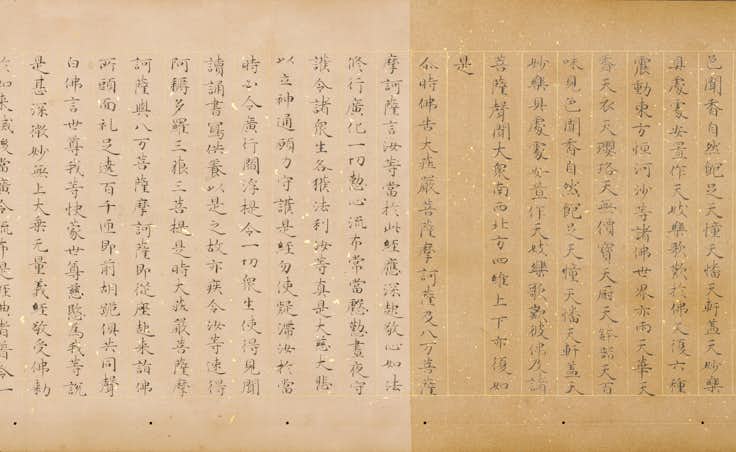 色聞香自然飽足天幢天幡天軒蓋天妙樂
具處處安置作天妓樂歌歎於佛又復六種
震動東方恒河沙等諸佛世界亦雨天華天
香天衣天瓔珞天無價寶天厨天鉢器天百
味見色聞香自然飽足天幢天幡天軒蓋天
妙樂具處處安置作天妓樂歌歎彼佛及諸
菩薩聲聞大衆南西北方四維上下亦復如
是
尒時佛告大莊嚴菩薩摩訶薩及八万菩薩
摩訶薩言汝等當於此經應深起敬心如法
修行廣化一切懃心流布常當慇懃晝夜守
護令諸衆生各獲法利汝等真是大慈大悲
以立神通願力守護是經勿使疑滯汝於當
時必令廣行閻浮提令一切衆生使得見聞
讀誦書寫供養以是之故亦疾令汝等速得
阿耨多羅三藐三菩提是時大莊嚴菩薩摩
訶薩與八万菩薩摩訶薩即從座起來詣佛
所頭面礼足遶百千匝即前胡跪俱共同聲
白佛言世尊我等快蒙世尊慈愍為我等說
是甚深微妙無上大乘无量義經敬受佛勅
於如来滅後當廣令流布是經典者普令一